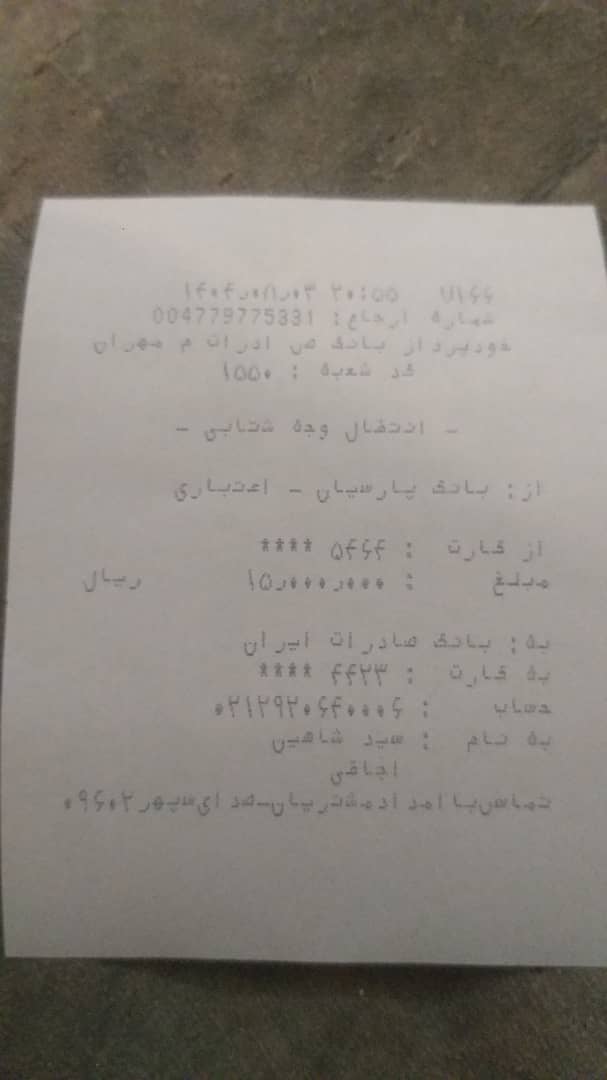 ۱۴۰۴٫۰۸٫۰۳ ۲۰:۵۵ ۷۱۶۶
شماره ارجاع: 004779775331
خودپرداز بانک ص ادرات م مهران
کد شعبه : ۱۵۵۰
- انتقال وجه شتابی -
از: بانک پارسیان - اعتباری
از کارت : ۵۴۶۴ ****
مبلغ : ۱۵٫۰۰۰٫۰۰۰ ریال
به: بانک صادرات ایران
به کارت : ۴۴۲۳ ****
حساب : ۰۲۱۲۹۲۰۶۴۰۰۰۶
به نام : سید شاهین
اجاقی
تماس با امداد مشتریان-صدای سپهر ۰۹۶۰۲